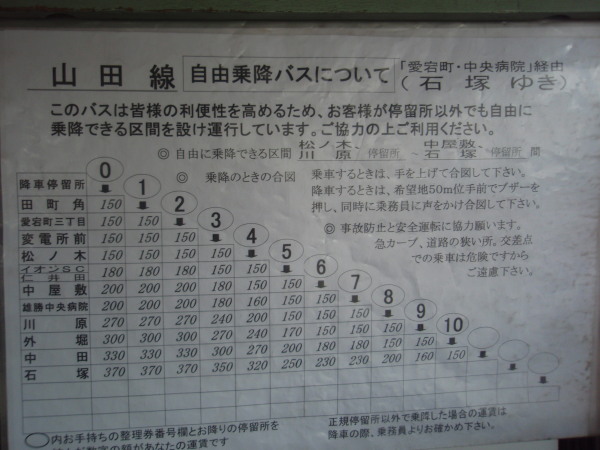 山田線 自由乗降バスについて 「愛宕町・中央病院」経由
(石塚ゆき)
このバスは皆様の利便性を高めるため、お客様が停留所以外でも自由に
乗降できる区間を設け運行しています。ご協力の上ご利用ください。
◎ 自由に乗降できる区間 松ノ木、川原 停留所 ~ 中屋敷、石塚 停留所 間
◎ 乗降のときの合図 乗車するときは、手を上げて合図して下さい。
降車するときは、希望地50m位手前でブザーを
押し、同時に乗務員に声をかけ合図して下さい。
◎ 事故防止と安全運転に協力願います。
急カーブ、道路の狭い所。交差点
での乗車は危険ですから
ご遠慮下さい。
降車停留所 0 1 2 3 4 5 6 7 8 9 10
田町角 150
愛宕町三丁目 150 150
変電所前 150 150 150
松ノ木 150 150 150 150
イオンSC仁井田 180 180 180 150 150
中屋敷 200 200 200 180 150 150
雄勝中央病院 200 200 200 180 160 150 150
川原 270 270 270 240 200 150 150 150
外堀 300 300 300 270 240 170 150 150 150
中田 330 330 330 300 270 200 180 180 150 150
石塚 370 370 370 350 320 250 230 230 200 160 150
内お手持ちの整理券番号欄とお降りの停留所を
数字の額があなたの運賃です
正規停留所以外で乗降した場合の運賃は
降車の際、乗務員よりお確かめ下さい。